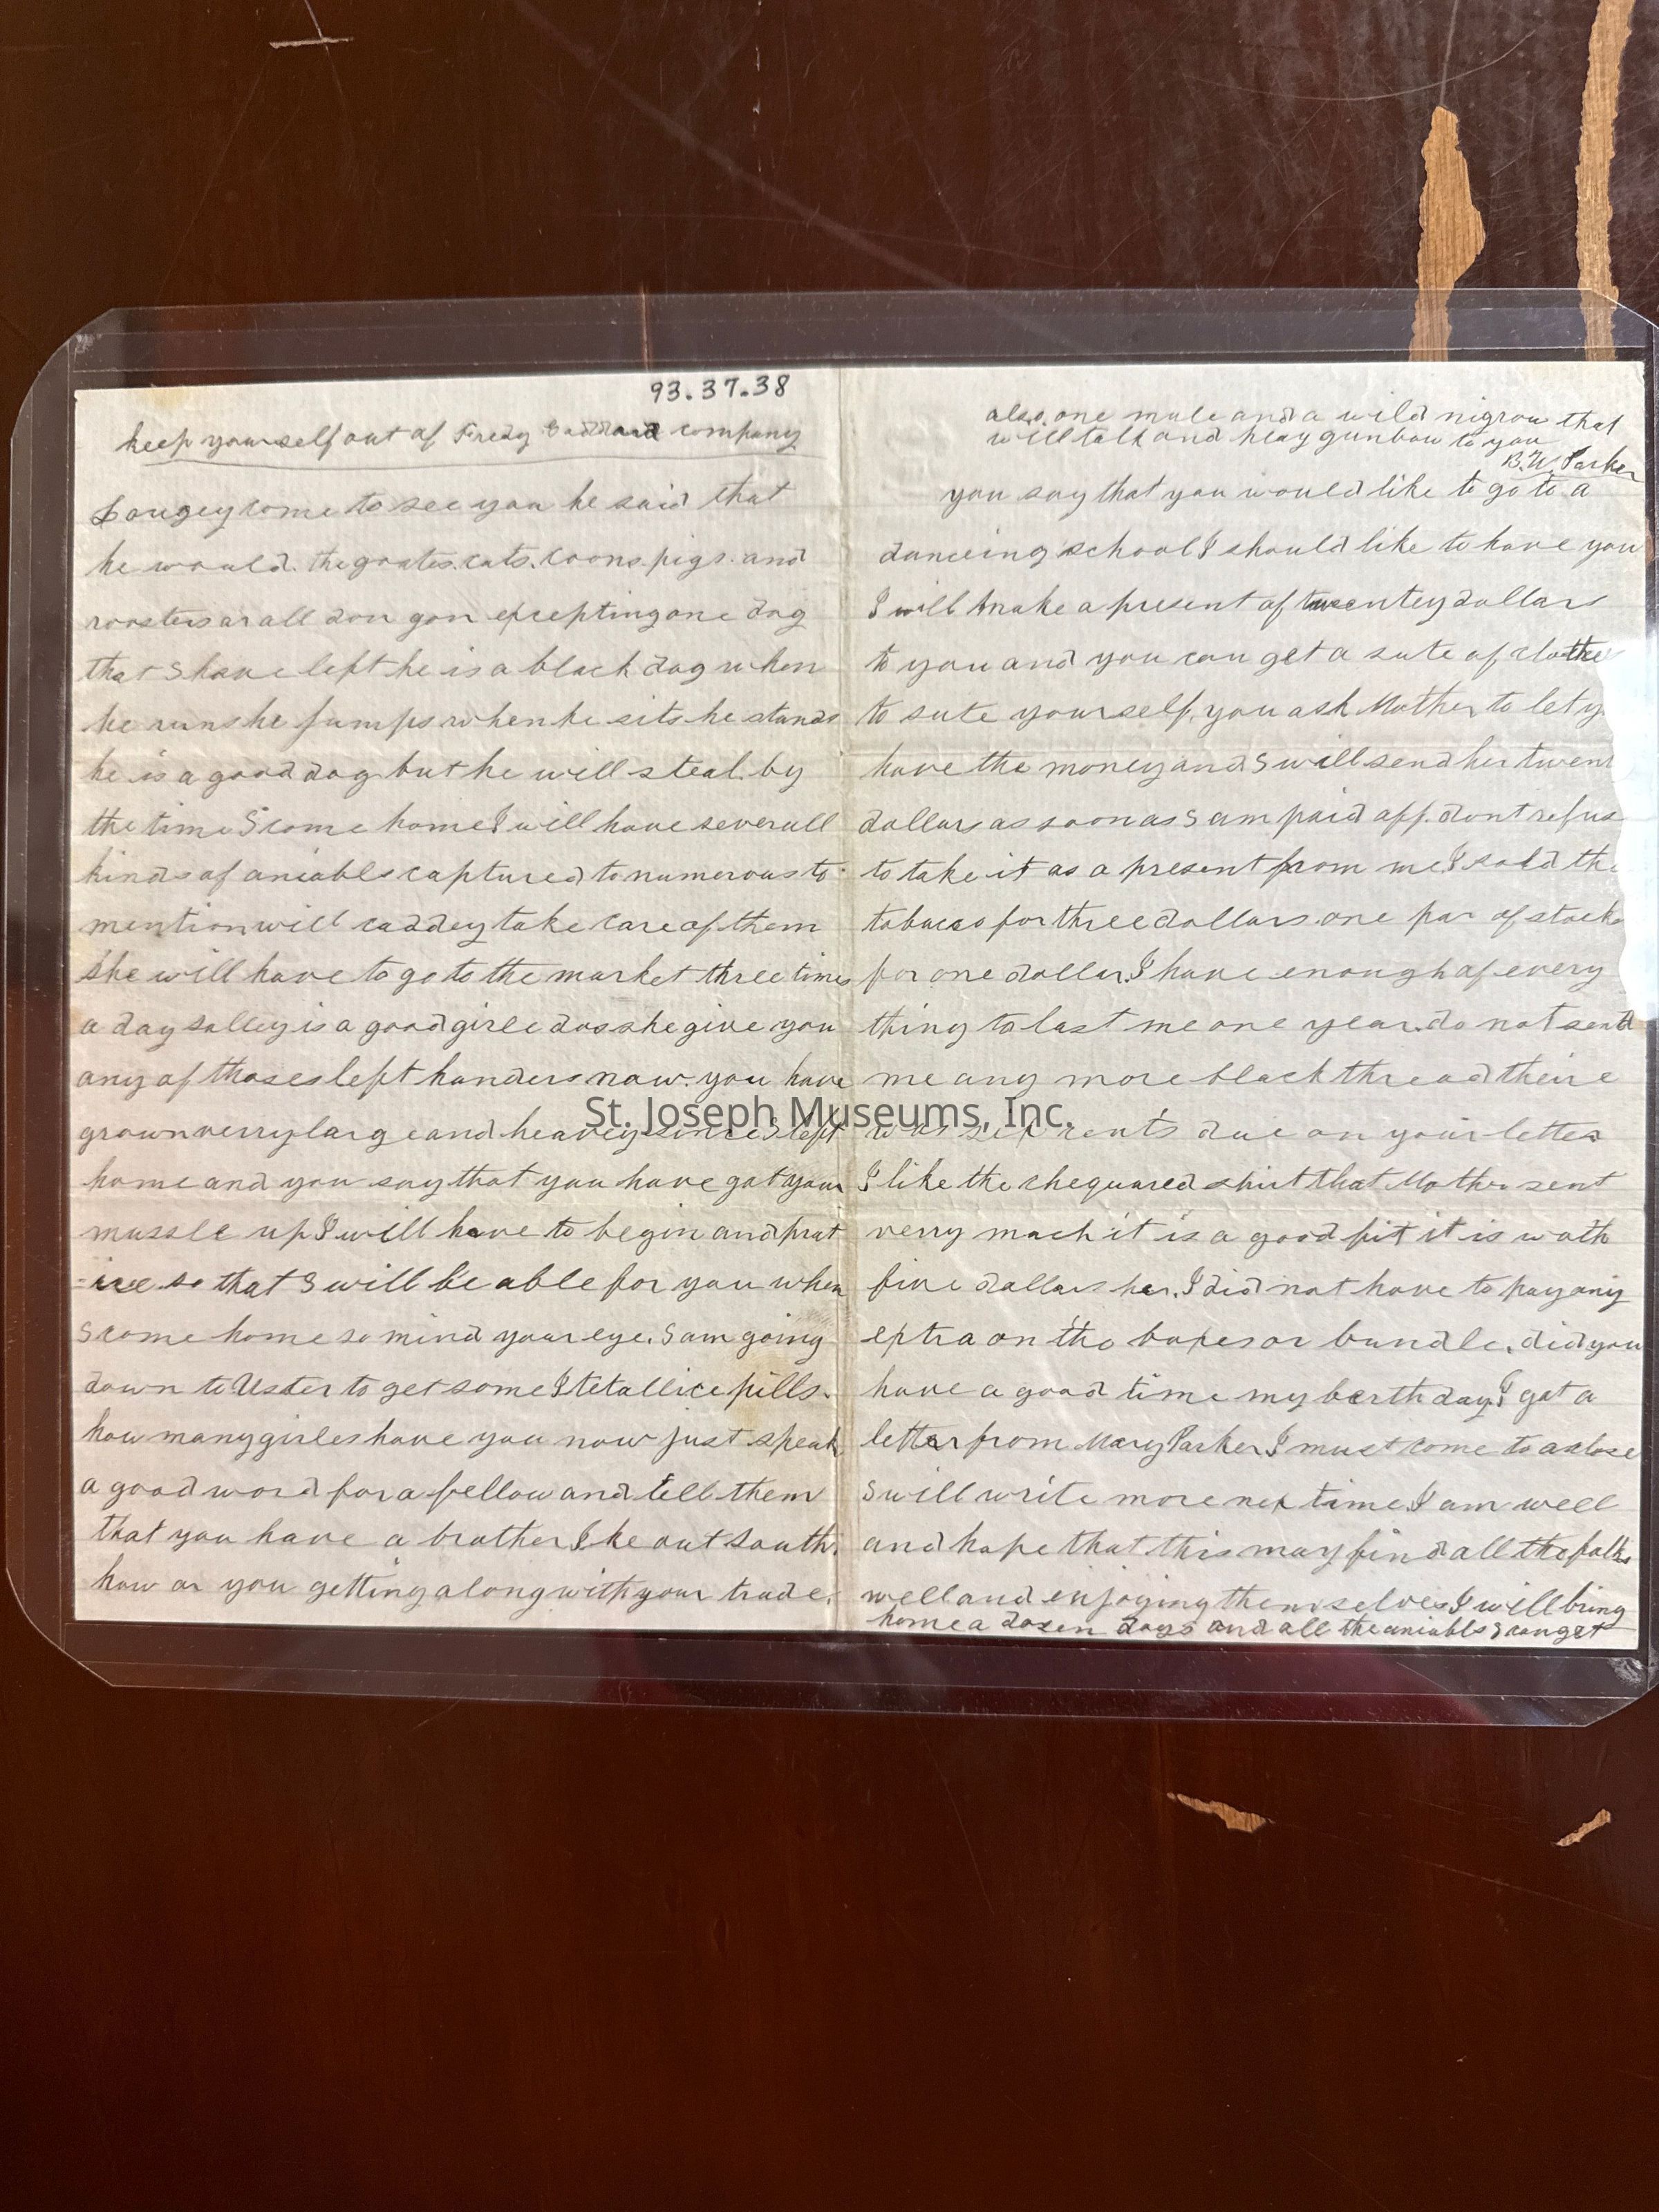 93.37.38
keep yourself out of Fredy company
Dougey come to see you he said that
he would. the goates. cats. coons. pigs. and
roosters ar all don gon excepting one dog
that I have left he is a black dog when
he runs he jumps when he sits he stands
he is a good dog but he will steal. by
the time I come home I will have severall
kinds of aniabls captured to numerous to
mention will caddey take care of them
she will have to go to the market three times
a day salley is a good girle dos she give you
any of thoses left handers now. you have
grown verry large and heavey since I left
home and you say that you have got your
mussle up I will have to begin and prat
=ice so that I will be able for you when
I come home so mind your eye. I am going
down to Uster to get some pills.
how many girles have you now just speak
a good word for a fellow and tell them
that you have a brother Ike out South.
how ar you getting along with your trade.
also. one mule and a wild nigrow that
will talk and to you
B.W. Parker
you say that you would like to go to a
danceing school I should like to have you
I will make a present of twentey dollars
to you and you can get a sute of clothe
to sute yourself. you ask Mother to let y
have the money and I will send her twent
dollars as soon as I am paid off. dont refus
to take it as a present from me. I sold the
tobacco for three dollars. one par of stock
for one dollar. I have enough of every
thing to last me one year. do not send
me any more black thread theire
was six cents due on your letter
I like the chequared shirt that Mother sent
verry mach it is a good fit it is woth
five dollars her. I did not have to pay any
extra on the boxes or bundle. did you
have a good time my berth day. I got a
letter from Mary Parker I must come to a close
I will write more nex time. I am well
and hope that this may find all the folks
well and enjoying themselves I will bring
home a dozen dogs and all the aniabls I can get
St. Joseph Museums, Inc.